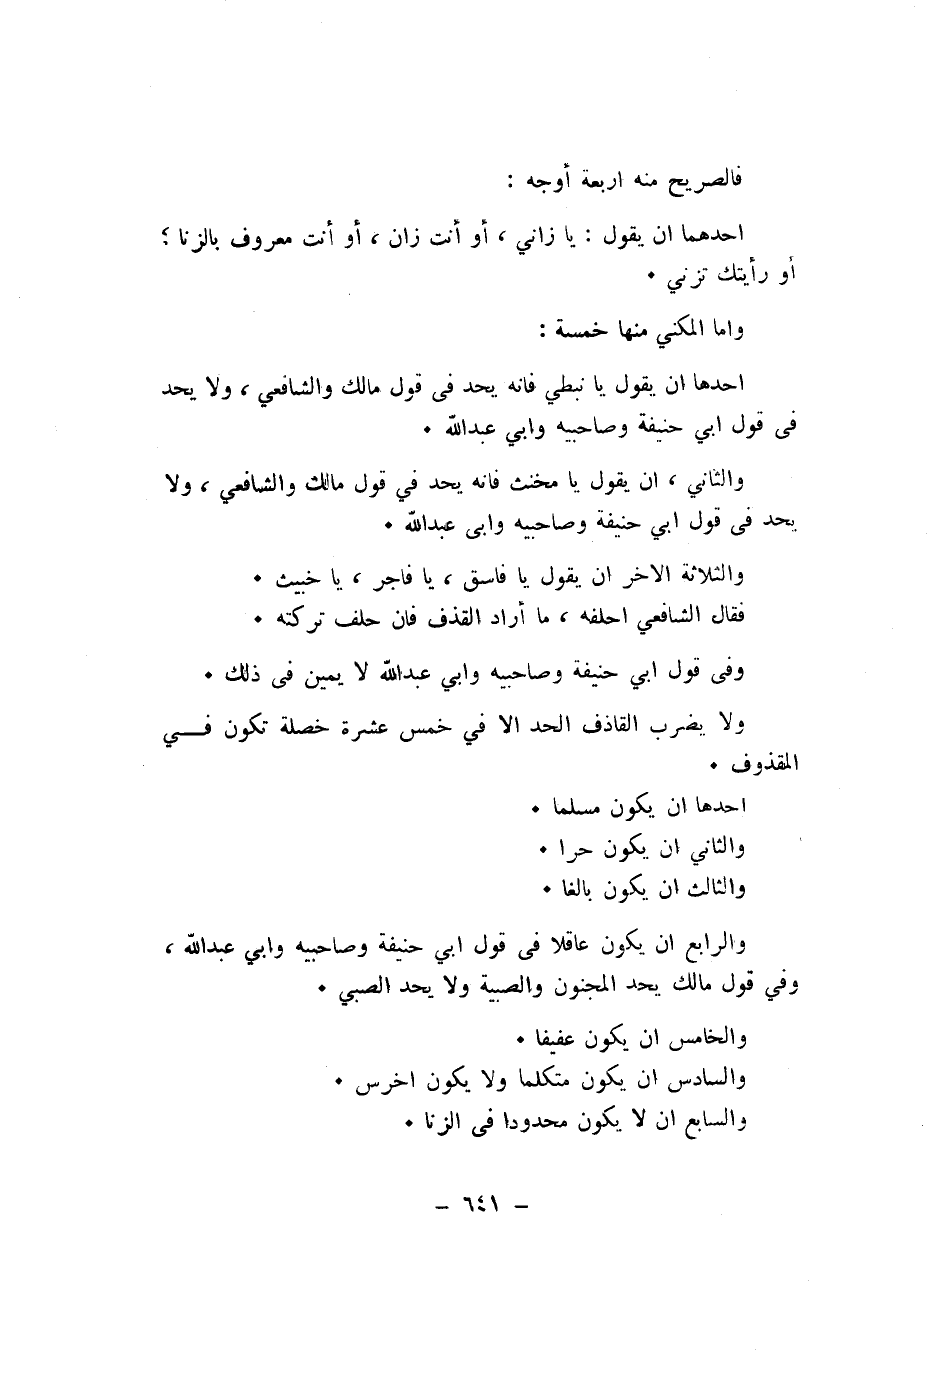 فالصريح منه اربعة أوجه :
احدهما ان يقول : يا زاني ، أو أنت زان ، أو أنت معروف بالزنا ؟
أو رأيتك تزني .
واما المكني منها خمسة :
احدها ان يقول يا نبطي فانه يحد فى قول مالك والشافعي ، ولا يحد
فى قول ابي حنيفة وصاحبيه وابي عبدالله .
والثاني ، ان يقول يا مخنث فانه يحد في قول مالك والشافعي ، ولا
يحد فى قول ابي حنيفة وصاحبيه وابى عبدالله .
والثلاثة الاخر ان يقول يا فاسق ، يا فاجر ، يا خبيث .
فقال الشافعي احلفه ، ما أراد القذف فان حلف تركته .
وفى قول ابي حنيفة وصاحبيه وابي عبدالله لا يمين فى ذلك .
ولا يضرب القاذف الحد الا في خمس عشرة خصلة تكون فـــي
المقذوف .
احدها ان يكون مسلما .
والثاني ان يكون حرا .
والثالث ان يكون بالغا .
والرابع ان يكون عاقلا فى قول ابي حنيفة وصاحبيه وابي عبدالله ،
وفي قول مالك يحد المجنون والصبية ولا يحد الصبي .
والخامس ان يكون عفيفا .
والسادس ان يكون متكلما ولا يكون اخرس .
والسابع ان لا يكون محدودا فى الزنا .
– ٦٤١ –